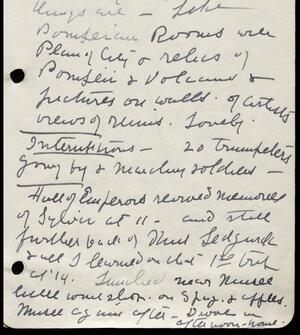 things are - Like
Pompeian Rooms with
Plan of City & relics of
Pompeii & Volcano &
pictures on walls. of artists
views of ruins. Lovely.
Interruptions - 20 trumpeters
going by & marching soldiers -
Hall of Emperors revived memories
of at 11 - and still
further back of Miss Sedgwick
& all I learned on that 1st trip
at 14. Lunched near Musee
little wine shop. on Spag. & apples.
Musee again after - Drove in
afternoon - home.